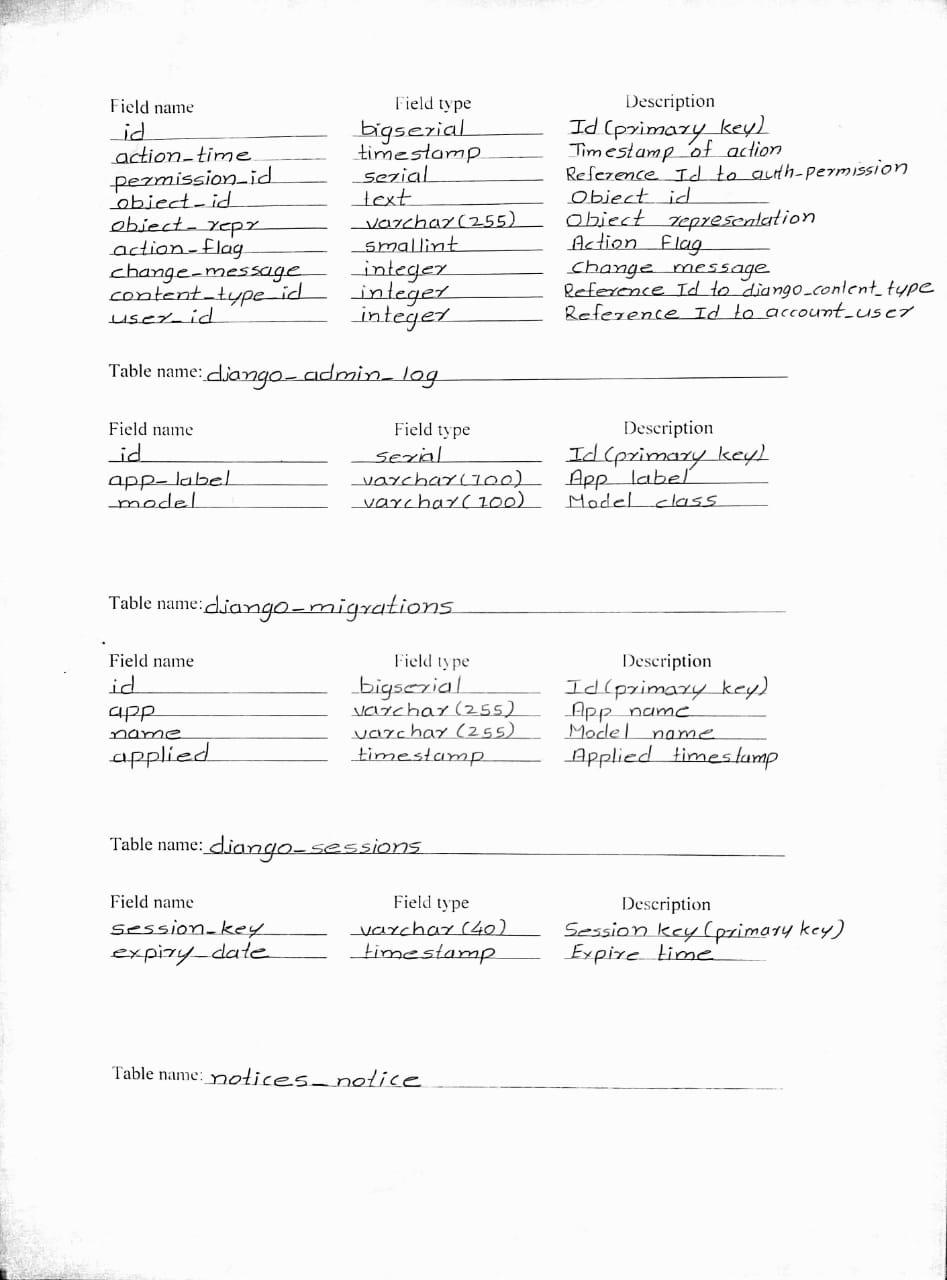 Field name Field type Description
id bigserial Id (primary key)
action_time timestamp Timestamp of action
permission_id serial Reference Id to auth-permission
object_id text Object id
object_repr varchar(255) Object representation
action_flag smallint Action Flag
change_message integer Change message
content_type_id integer Reference Id to django_content_type
user_id integer Reference Id to account_user
Table name: django_admin_log
Field name Field type Description
id serial Id (primary key)
app_label varchar(100) App label
model varchar(100) Model class
Table name: django_migrations
Field name Field type Description
id bigserial Id (primary key)
app varchar (255) App name
name varchar (255) Model name
applied timestamp Applied timestamp
Table name: django_sessions
Field name Field type Description
session_key varchar (40) Session key (primary key)
expiry_date timestamp Expire time
Table name: notices_notice